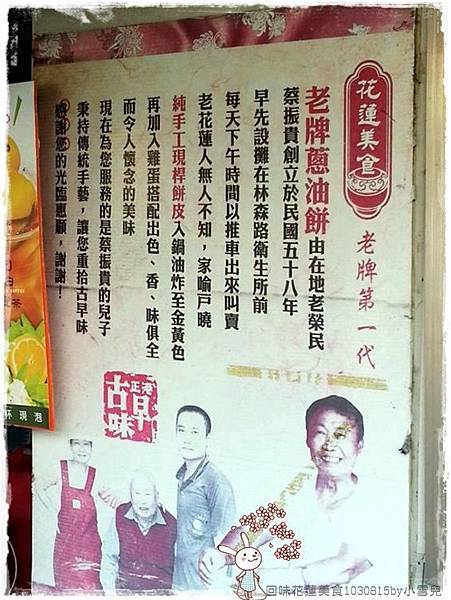 花蓮美食
老牌第一代
老牌蔥油餅由在地老榮民
蔡振貴創立於民國五十八年
早先設攤在林森路衛生所前
每天下午時間以推車出來叫賣
老花蓮人無人不知，家喻戶曉
純手工現桿餅皮入鍋油炸至金黃色
再加入雞蛋搭配出色、香、味俱全
而令人懷念的美味
現在為您服務的是蔡振貴的兒子
秉持傳統手藝，讓您重拾古早味
感謝您的光臨惠顧，謝謝！
正港
古早味
茶
杯現泡
回味花蓮美食1030815by小雪兒